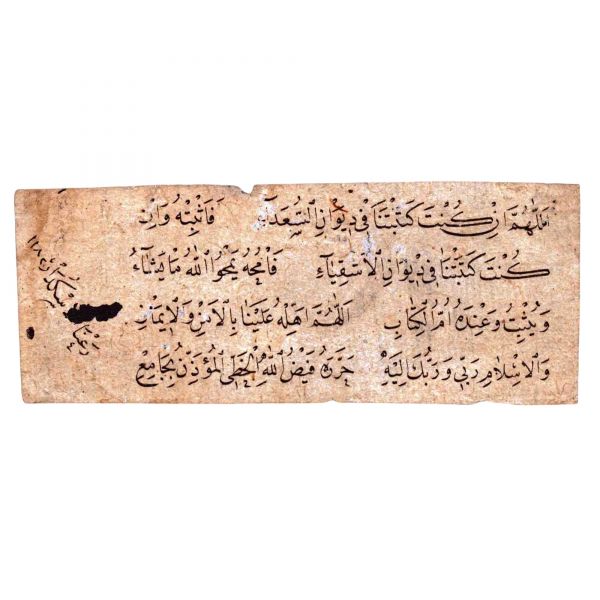 اللهم ان كنت كتبتنا في ديوان السعداء فاثبته وان
كنت كتبتنا في ديوان الاشقياء فامحه يمحوا الله ما يشاء
ويثبت وعنده ام الكتاب اللهم اهله علينا بالامن والايمان
والاسلام ربي وربك الله حرره فيض الله الخطي المؤذن بجامع